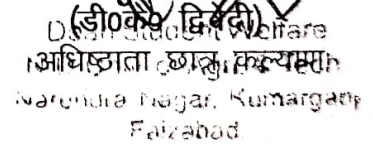 (डी०के० द्विवेदी)
Dean Student Welfare
अधिष्ठाता छात्र कल्याण
Narendra Nagar, Kumarganj
Faizabad